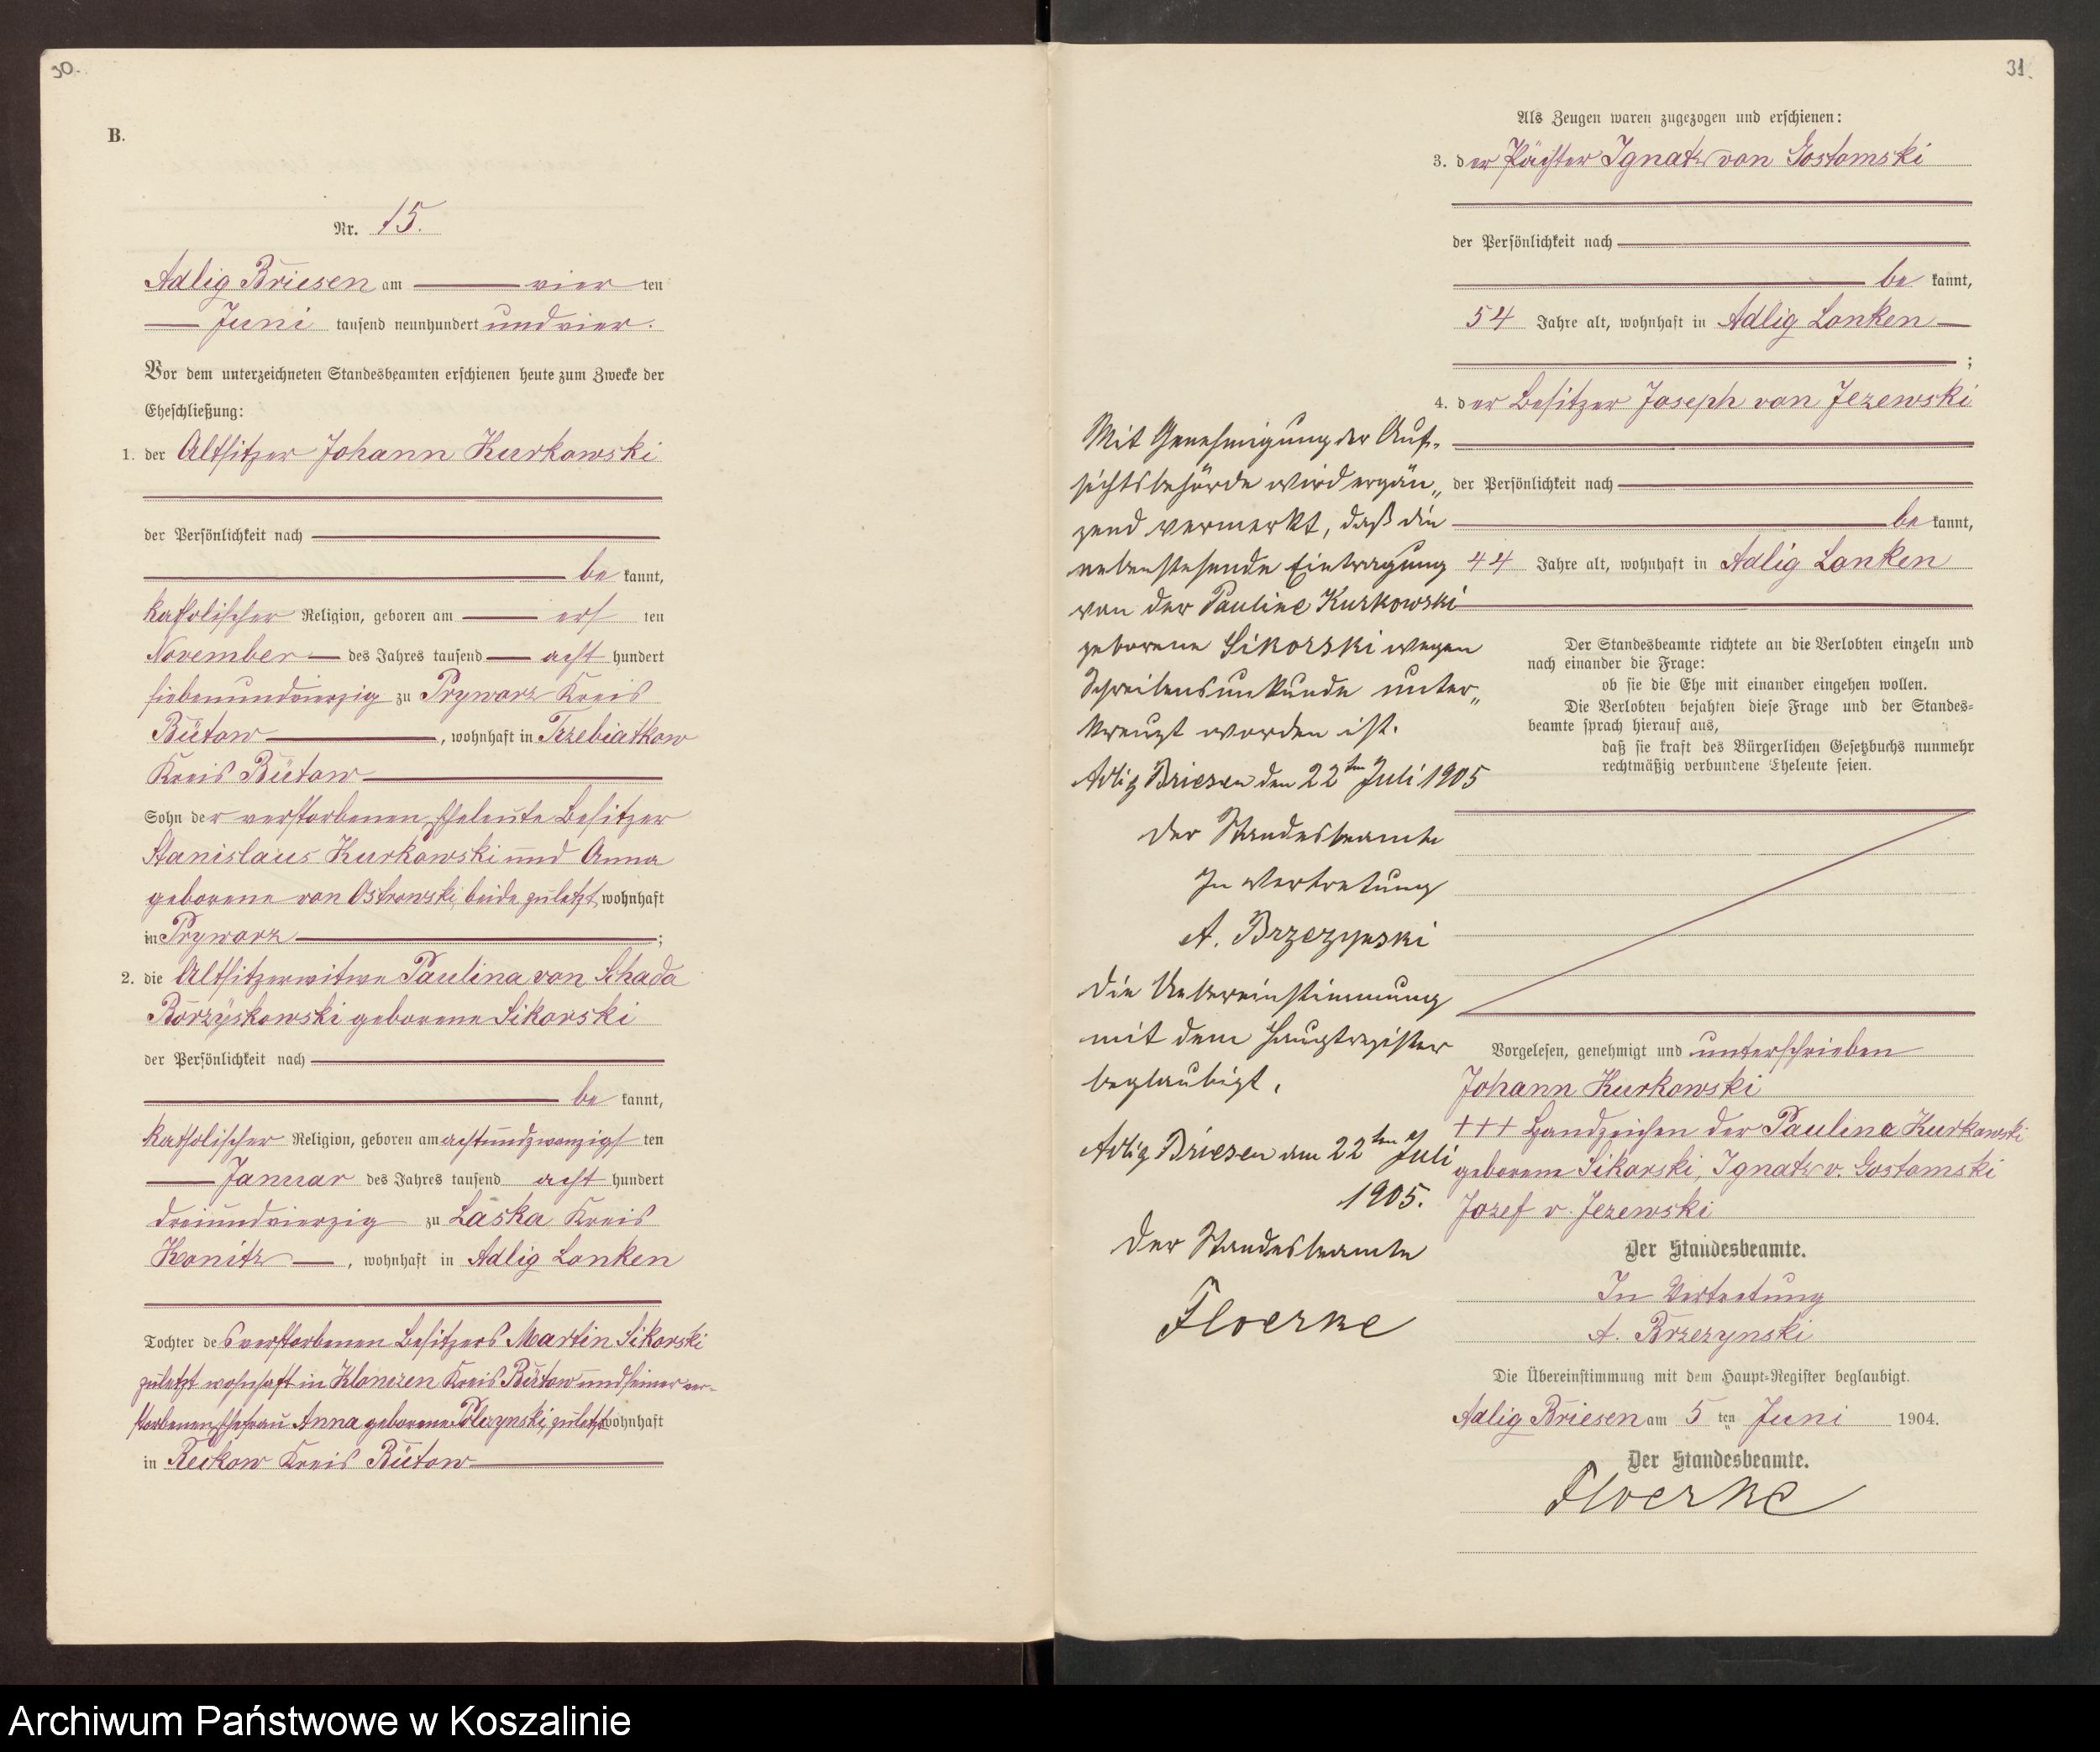 30.
B.
Nr. 15.
Adlig Briesen am vier ten
Juni tausend neunhundert und vier.
Vor dem unterzeichneten Standesbeamten erschienen heute zum Zwecke der
Eheschließung:
1. der Altsitzer Johann Kurkowski
der Persönlichkeit nach
be kannt,
katholischer Religion, geboren am ers ten
November des Jahres tausend acht hundert
siebenundvierzig zu Prywarz Kreis
Bütow, wohnhaft in Trzebiatkow
Kreis Bütow
Sohn der verstorbenen Eheleute Besitzer
Stanislaus Kurkowski und Anna
geborene von Ostrowski, beide zuletzt wohnhaft
in Prywarz;
2. die Altsitzerwitwe Paulina von Schada
Borzyskowski geborene Sikorski
der Persönlichkeit nach
be kannt,
katholischer Religion, geboren am achtundzwanzigs ten
Januar des Jahres tausend acht hundert
dreiundvierzig zu Laska Kreis
Konitz, wohnhaft in Adlig Lonken
Tochter des verstorbenen Besitzers Martin Sikorski
zuletzt wohnhaft in Klonczen Kreis Bütow und seiner ver-
storbenen Ehefrau Anna geborene zuletzt wohnhaft
in Reckow Kreis Bütow
31.
Als Zeugen waren zugezogen und erschienen:
3. der Pächter Ignatz von Gostomski
der Persönlichkeit nach
be kannt,
54 Jahre alt, wohnhaft in Adlig Lonken
;
4. der Besitzer Joseph von Jezewski
der Persönlichkeit nach
be kannt,
44 Jahre alt, wohnhaft in Adlig Lonken
Der Standesbeamte richtete an die Verlobten einzeln und
nach einander die Frage:
ob sie die Ehe mit einander eingehen wollen.
Die Verlobten bejahten diese Frage und der Standes=
beamte sprach hierauf aus,
daß sie kraft des Bürgerlichen Gesetzbuchs nunmehr
rechtmäßig verbundene Eheleute seien.
Vorgelesen, genehmigt und unterschrieben
Johann Kurkowski
+++ Handzeichen der Paulina Kurkowski
geborene Sikorski, Ignatz v. Gostomski
Jozef v. Jezewski
Der Standesbeamte.
In Vertretung
A. Brzezynski
Die Übereinstimmung mit dem Haupt=Register beglaubigt.
Adlig Briesen am 5 ten Juni 1904.
Der Standesbeamte.
Floerke
Mit Genehmigung der Auf-
sichtsbehörde wird ergän„
zend vermerkt, daß die
nebenstehende Eintragung
von der Pauline Kurkowski
geborene Sikorski wegen
Schreibensunkunde unter„
kreuzt worden ist.
Adlig Briesen den 22ten Juli 1905
Der Standesbeamte
In Vertretung
A. Brzezynski
Die Uebereinstimmung
mit dem Hauptregister
beglaubigt.
Adlig Briesen am 22ten Juli
1905.
Der Standesbeamte
Floerke
Archiwum Państwowe w Koszalinie